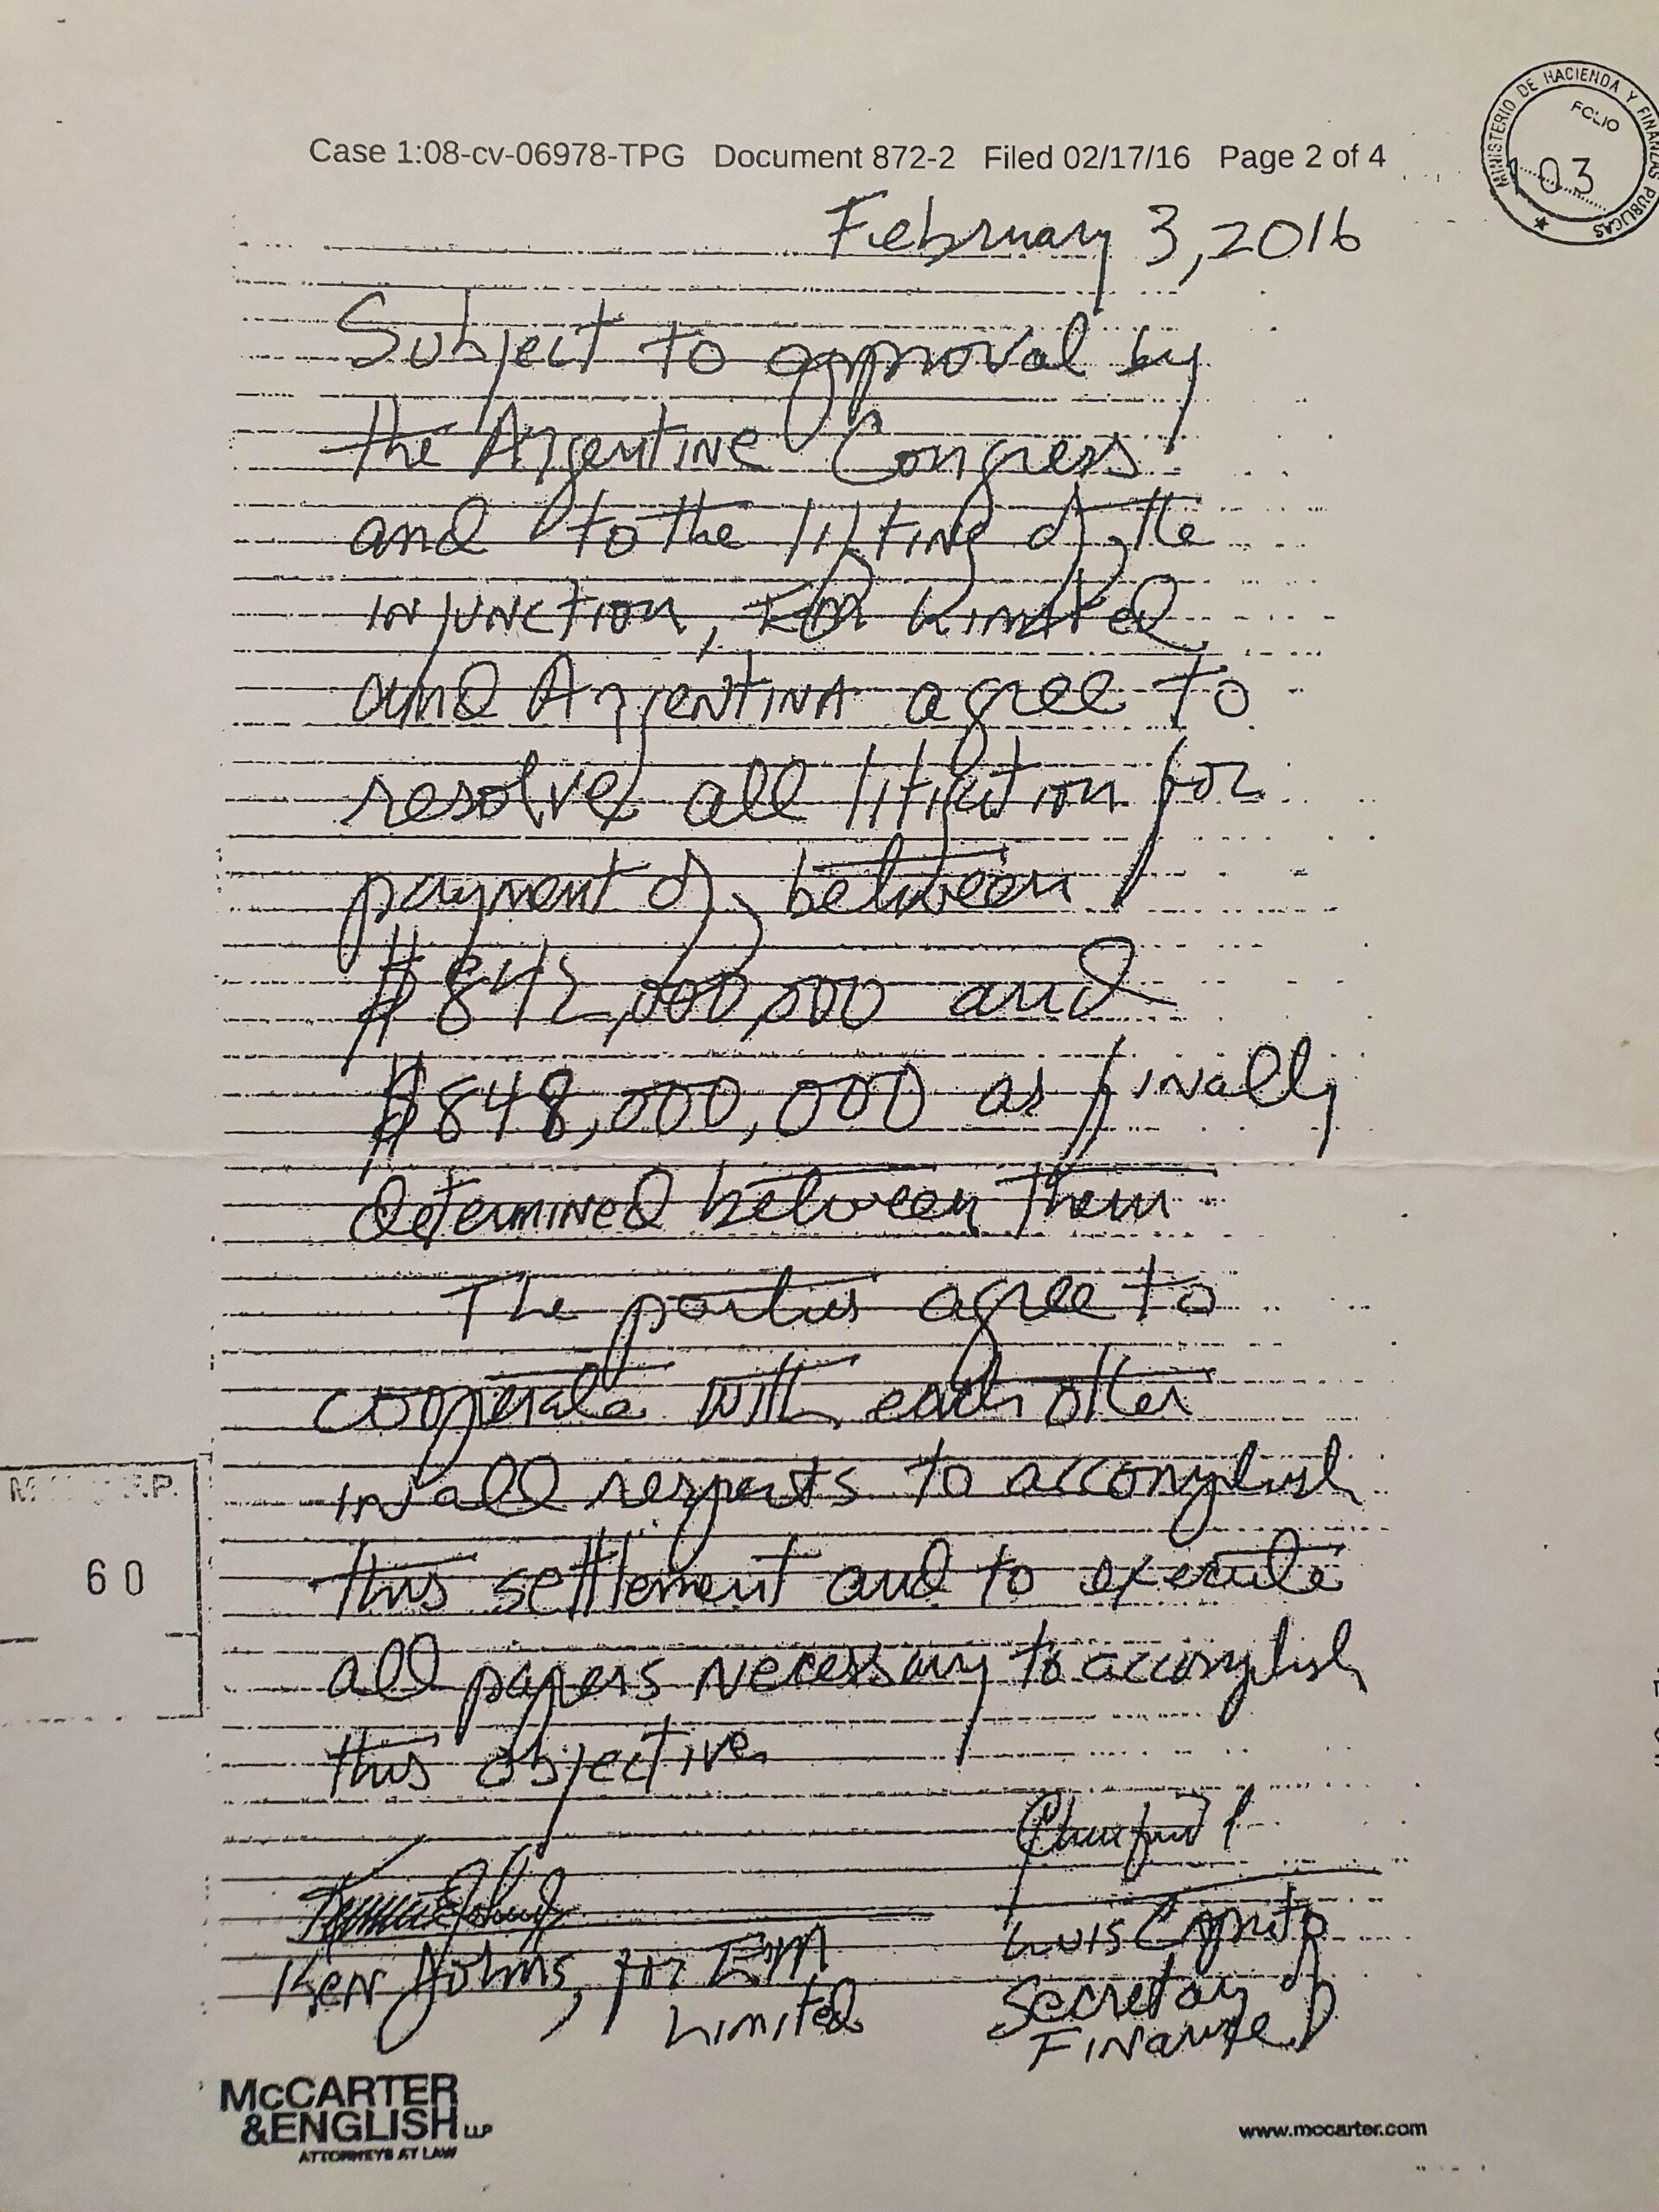 MINISTERIO DE HACIENDA Y FINANZAS PUBLICAS
FOLIO
103
Case 1:08-cv-06978-TPG Document 872-2 Filed 02/17/16 Page 2 of 4
February 3, 2016
Subject to approval by
the Argentine Congress
and to the lifting of the
injunction, EM Limited
and Argentina agree to
resolve all litigation for
payment of between
$842,000,000 and
$848,000,000 as finally
determined between them
The parties agree to
cooperate with each other
in all respects to accomplish
this settlement and to execute
all papers necessary to accomplish
this objective.
60
Ken
for EM
Limited
Luis Caputo
Secretary of
Finance
McCARTER
&ENGLISH LLP
ATTORNEYS AT LAW
www.mccarter.com